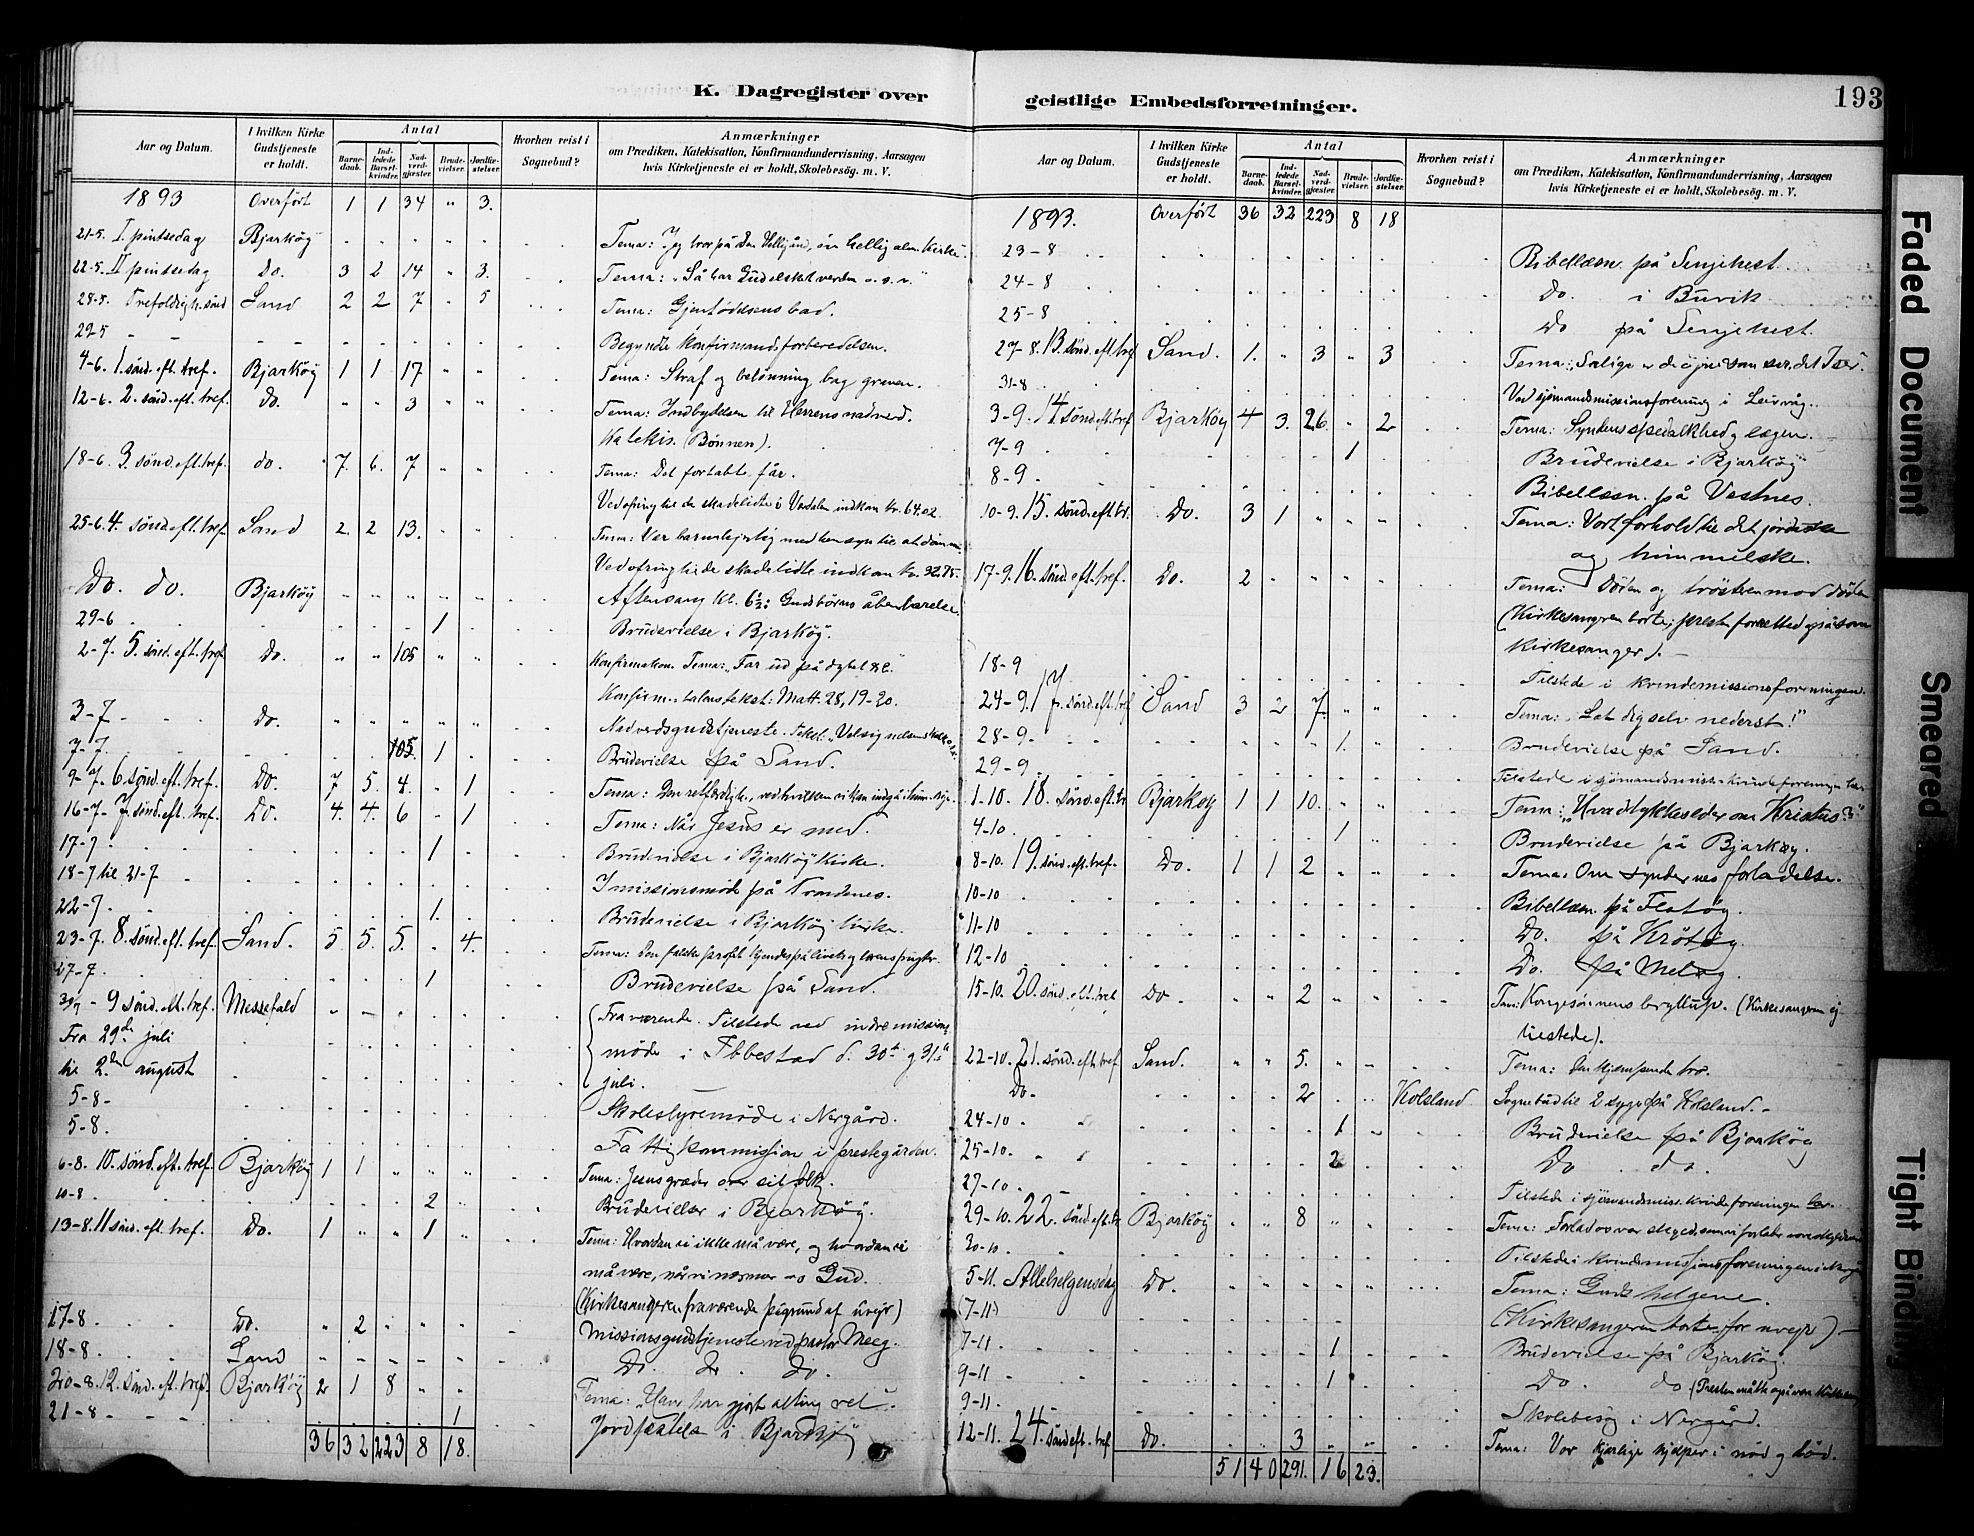 K. Dagregister over
Aar og Datum. I hvilken Kirke Gudstjeneste er holdt. Antal Barnedaab. Indledede Barselkvinder. Nadverdgjæster. Brudevielser. Jordfæstelser. Hvorhen reist i Sognebud? Anmærkninger om Prædiken, Katekisation, Konfirmandundervisning, Aarsagen hvis Kirketjeneste ei er holdt, Skolebesøg. m. V.
1893 Overført 1 1 34 " 3.
21-5. I pintsedag Bjarköy Tema: Jeg tror på den Helligånd, én hellig alm. Kirke.
22-5. II pintsedag Do. 3 2 14 " 3. Tema: "Så har Gud elsket verden o.s.v."
28-5. Trefoldigh. sönd Sand 2 2 7 " 5 Tema: Gjenfødelsens bad.
29-5 Begyndte konfirmandforberedelsen.
4-6. 1. sönd. eft. tref. Bjarköy 1 1 17 " " Tema: Straf og belönning bag graven.
12-6. 2. sönd. eft. tref. Do. " " 3 " " Tema: Indbydelsen til Herrens nadverd.
Katekis. (Bönnen).
18-6. 3. sönd. eft. tref. do. 7. 6. 7 " " Tema: Det fortabte får.
Ved ofring til de skadelidte i Værdalen indkom kr. 64.02.
25-6. 4. sönd. eft. tref. Sand 2. 2 13. " "
Ved ofring til de skadelidte indkom kr. 32.75.
Do. do. Bjarköy " " " " " Aftensang kl. 6½: Gudsbörns åbenbarelse.
29-6 1 Brudevielse i Bjarköy.
2-7. 5. sönd. eft. tref. Do. " " 105 " " Konfirmation. Tema: "Far ud på dybet &c."
Konfirm.-talens tekst: Matt. 28, 19-20.
3-7 Do. " " " " " Nadverdsgudstjeneste.
7-7. 105. 1 Brudevielse på Sand.
9-7. 6 sönd. eft. tref. Do. 7 5. 4. " 1
16-7. 7. sönd. eft. tref. Do. 4. 4. 6 " 1 Tema: Når Jesus er med.
17-7 1 Brudevielse i Bjarköy Kirke.
18-7 til 21-7 I missionsmöde på Trondenes.
22-7. 1. Brudevielse i Bjarköy kirke.
23-7. 8. sönd. eft. tref. Sand. 5. 5. 5. " 4. Tema: Den falske profet kjendes på livets og lærens frugter.
27-7. 1 Brudevielse på Sand.
30/7 - 9 sönd. eft. tref. Messefald Fraværende. Tilstede ved indremissions
Fra 29de juli möde i Ibbestad d. 30te og 31te
til 2den august juli.
5-8 Skolestyremöde i Nergård.
5-8. Fattigkommission i prestegården.
6-8. 10. sönd. eft. tref. Bjarköy 1 1 " " " Tema: Jesus græder over sit folk.
10-8 2 Brudevielser i Bjarköy.
13-8. 11 sönd. eft. tref. Do. 1 " " 1 " Tema: Hvordan vi ikke må være, og hvordan vi
må være, når vi nærmer os Gud.
(Kirkesangeren fraværende på grund af uvejr)
17-8 Do. " 2 " " " Missionsgudstjeneste ved pastor Meeg.
18-8. Sand " " " " " Do. do. do.
20-8. 12. sönd. eft. tref. Bjarköy 2 1 8 " " Tema: "Han har gjort alting vel".
21-8 1 Jordfæstelse i Bjarköy
36 32 223 8 18.
geistlige Embedsforretninger.
193
Aar og Datum. I hvilken Kirke Gudstjeneste er holdt. Antal Barnedaab. Indledede Barselkvinder. Nadverdgjæster. Brudevielser. Jordfæstelser. Hvorhen reist i Sognebud? Anmærkninger om Prædiken, Katekisation, Konfirmandundervisning, Aarsagen hvis Kirketjeneste ei er holdt, Skolebesøg. m. V.
1893. Overført 36 32 223 8 18
23-8 Bibellæsn. på Senjehest.
24-8 Do. i Buvik.
25-8 Do på Senjehest.
27-8. 13. sönd. eft. tref Sand. 1. " 3 " 3 Tema: "Salige er de öjne som ser, det I ser".
31-8 Ved sjömandsmissionsforening i Leirvåg.
3-9. 14 sönd. eft. tref. Bjarköy 4 3. 26. " 2 Tema: Syndens spedalskhed og lægen.
7-9 1 Brudevielse i Bjarköy
8-9 Bibellæsn. på Vestnes.
10-9. 15. sönd. eft. tr. Do. 3 1 " " " Tema: Vort forhold til det jordiske
og himmelske.
17-9. 16. sönd. eft. tref. Do. 2 " " " " Tema: Döden og trösten mod döden
(Kirkesangeren borte; presten forrettede også som
Kirkesanger).
18-9 Tilstede i kvindemissionsforeningen.
24-9. 17 sönd. eft. tref Sand 3 2 7. " " Tema: "Sæt dig selv nederst!"
28-9. 1. Brudevielse på Sand.
29-9 Tilstede i sjömandsmiss. kvindeforeningen her
1-10. 18. sönd. eft. tr Bjarköy 1 1 10. " " Tema: "Hvad tykkes eder om Kristus?"
4-10. 1 Brudevielse på Bjarköy.
8-10. 19. sönd. eft. tref. Do. 1 1 2 " " Tema: Om syndernes forladelse.
10-10 Bibellæsn. på Flatöy.
11-10 Do. på Krötöy.
12-10 Do. på Meløy.
15-10. 20. sönd. eft. tref Do. " " 2 " " Tema: Kongesönnens bryllup. (Kirkesangeren ej
tilstede).
22-10. 21. sönd. eft. tref Sand. " " 5. " " Tema: Den kjæmpende tro.
Do. 2 Kolsland Sognebud til 2 syge på Kolsland.
24-10 1 Brudevielse på Bjarköy
25-10. 2 Do do.
27-10 Tilstede i sjömandsmiss. kvindeforeningen her.
29-10. 22. sönd. eft. tr Bjarköy " " 8 " " Tema: Forlad os vor skyld som vi forlade vore skyldnere
30-10 Tilstede i kvindemissionsforeningen i Nergård
5-11. Allehelgensdag Do. " " " " " Tema: Guds helgene.
(7-11) (Kirkesangeren borte for uvejr)
7-11 1 Brudevielse på Bjarköy.
9-11 1 Do. do (Presten måtte også være kirkesanger)
9-11. Skolebesög i Nergård.
12-11. 24. sönd. eft. tref Do. " " 3 " " Tema: Vor kjærlige hjælper i nöd og död.
51 40 291. 16 23.
Faded Document
Smeared
Tight Binding